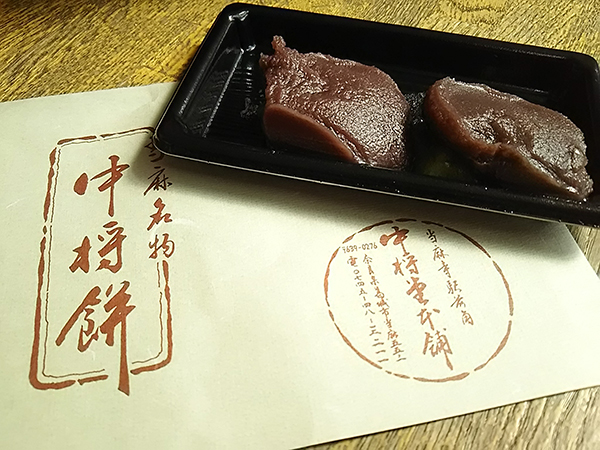 当麻名物
中将餅
当麻寺駅前角
中将堂本舗
〒639-0276
奈良県葛城市當麻五五二
電〇七四五-四八-三二一一